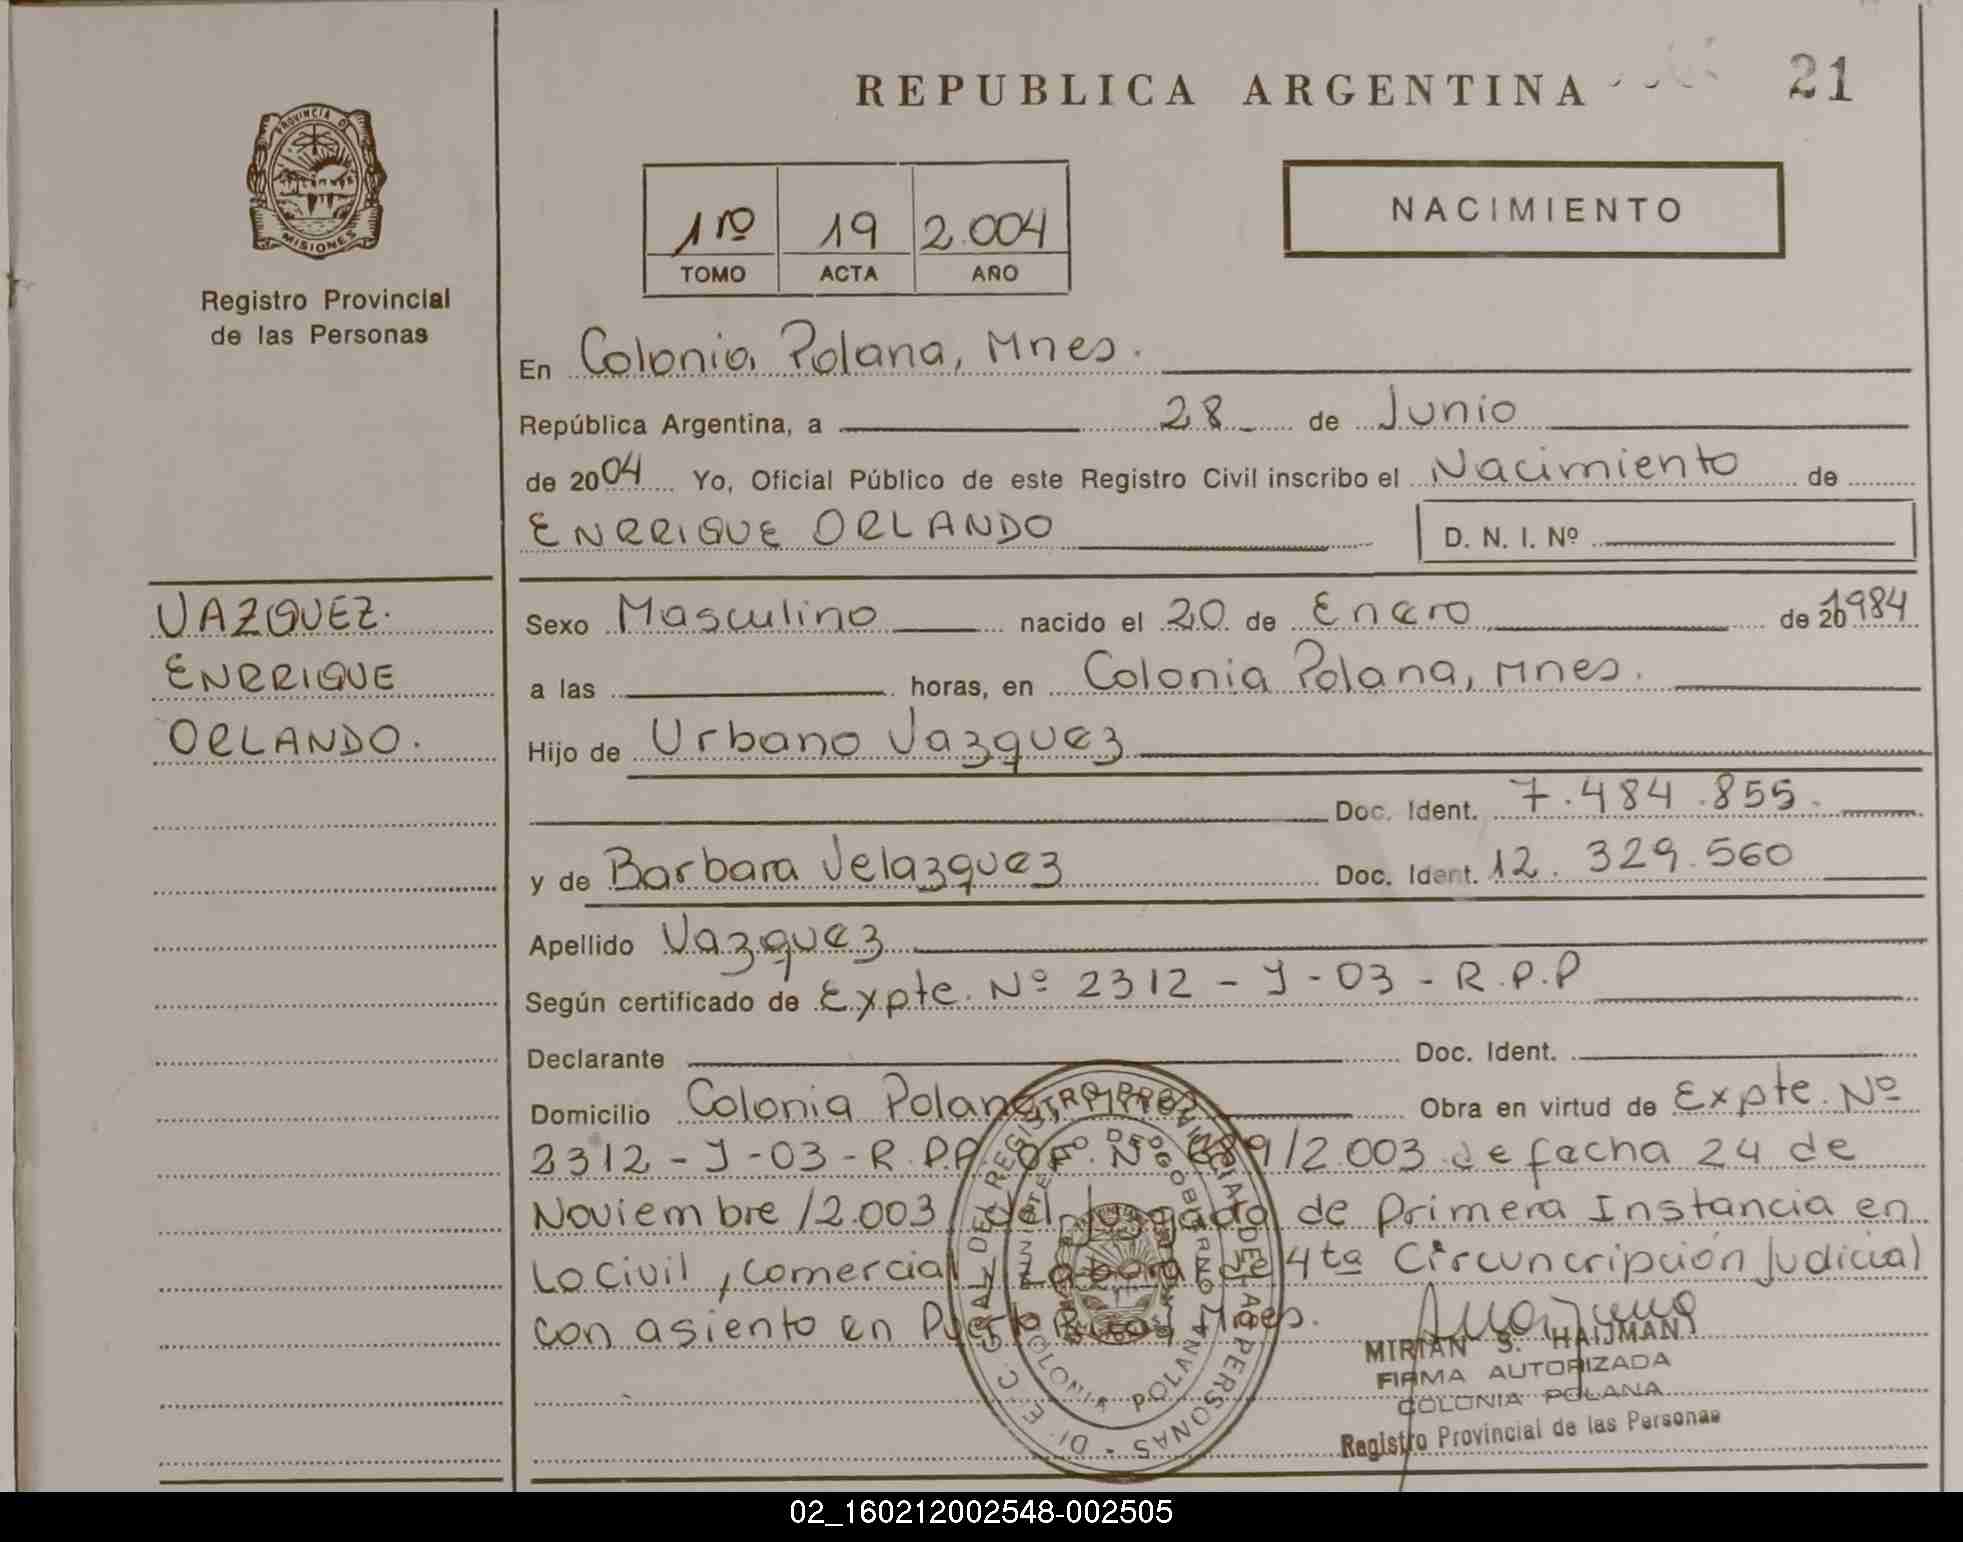 REPUBLICA ARGENTINA
21
PROVINCIA DE
MISIONES
Registro Provincial
de las Personas
1ro 19 2.004
TOMO ACTA AÑO
NACIMIENTO
En Colonia Polana, Mnes.
República Argentina, a 28 de Junio
de 2004 Yo, Oficial Público de este Registro Civil inscribo el Nacimiento de
ENRRIQUE ORLANDO D. N. I. Nº
VAZQUEZ.
ENRRIQUE
ORLANDO.
Sexo Masculino nacido el 20 de Enero de 20 1984
a las horas, en Colonia Polana, Mnes.
Hijo de Urbano Vazquez
Doc. Ident. 7.484.855.
y de Barbara Velazquez Doc. Ident. 12.329.560
Apellido Vazquez
Según certificado de Expte. Nº 2312 - J - 03 - R.P.P
Declarante Doc. Ident.
Domicilio Colonia Polana, Mnes Obra en virtud de Expte. Nº
2312 - J - 03 - R.P.P. OF. Nº /2.003 de fecha 24 de
Noviembre /2.003 del Juzgado de Primera Instancia en
Lo Civil, Comercial y Laboral de 4ta Circuncripción Judicial
con asiento en Puerto Rico, Mnes.
DEL REGISTRO PROVINCIAL DE LAS PERSONAS
POLANA
MIRIAN S. HAIJMAN
FIRMA AUTORIZADA
COLONIA POLANA
Registro Provincial de las Personas
02_160212002548-002505